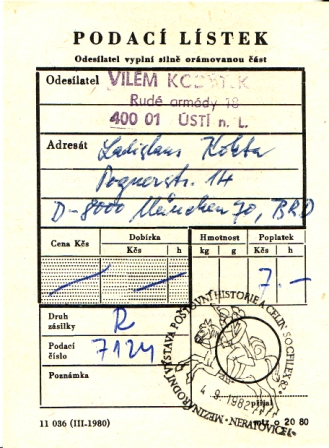 PODACÍ LÍSTEK
Odesílatel vyplní silně orámovanou část
Odesílatel VILÉM
Rudé armády 18
400 01 ÚSTÍ n. L.
Adresát Ladislaus
Pognerstr. 14
D-8000 München 70, BRD
Cena Kčs Dobírka Hmotnost Poplatek
Kčs h kg g Kčs h
7.-
Druh zásilky R
Podací číslo 7124
Poznámka
MEZINÁRODNÍ VÝSTAVA POŠTOVNÍ HISTORIE A CELIN "SOCFILEX 82"
4 9 1982
NERATOVICE
přijal
11 036 (III-1980) 20 80